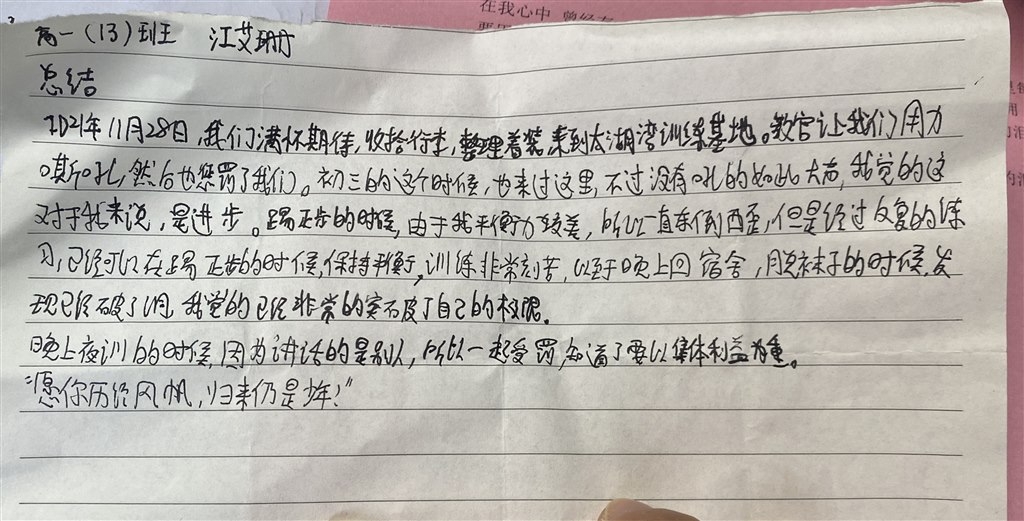 在我心中,曾经有
高一(13)班 江艾珊
总结
2021年11月28日,我们满怀期待,收拾行李,整理着装来到太湖湾训练基地。教官让我们用力
嘶吼,然后也惩罚了我们。初三的这个时候,也来过这里,不过没有吼的如此大声,我觉的这
对于我来说,是进步。踢正步的时候,由于我平衡力较差,所以一直东倒西歪,但是经过反复的练
习,已经可以在踢正步的时候,保持平衡,训练非常刻苦,以至于晚上回宿舍,脱袜子的时候,发
现已经破了洞,我觉的已经非常的突破了自己的极限。
晚上夜训的时候,因为讲话的是别人,所以一起受罚,知道了要以集体利益为重。
“愿你历经风帆,归来仍是少年!”